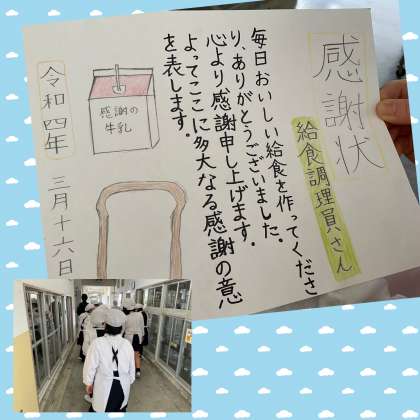 感謝状
給食調理員さん
毎日おいしい給食を作ってくださ
り、ありがとうございました。
心より感謝申し上げます。
よってここに多大なる感謝の意
を表します。
感謝の
牛乳
令和四年
三月十六日